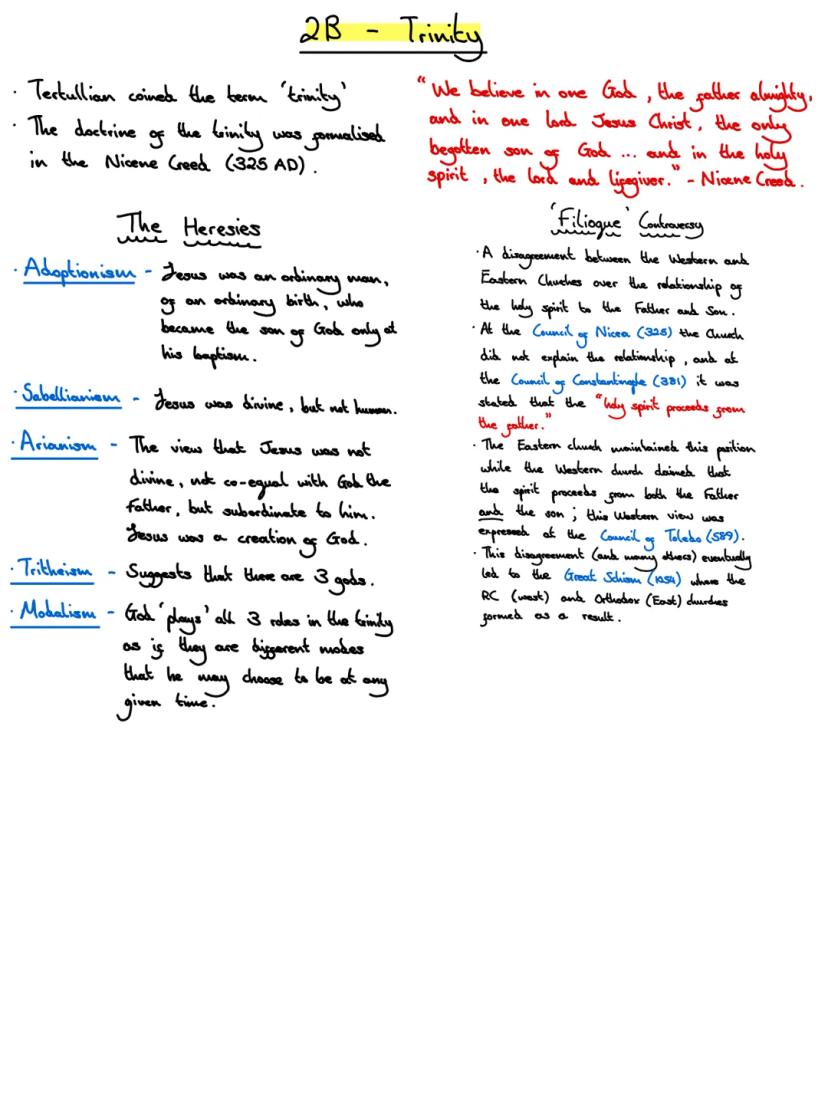 2B - Trinity
· Tertullian coined the term 'trinity'
· The doctrine of the trinity was formalised
in the Nicene Creed (325 AD).
"We believe in one God, the father almighty,
and in one lord Jesus Christ, the only
begotten son of God ... and in the holy
spirit, the lord and lifegiver." - Nicene Creed.
The Heresies
· Adoptionism - Jesus was an ordinary man,
of an ordinary birth, who
became the son of God only at
his baptism.
· Sabellianism - Jesus was divine, but not human.
· Arianism - The view that Jesus was not
divine, not co-equal with God the
Father, but subordinate to him.
Jesus was a creation of God.
· Tritheism - Suggests that there are 3 gods.
· Modalism - God 'plays' all 3 roles in the trinity
as if they are different modes
that he may choose to be at any
given time.
'Filioque' Controversy
· A disagreement between the Western and
Eastern Churches over the relationship of
the holy spirit to the Father and Son.
· At the Council of Nicea (325) the Church
did not explain the relationship, and at
the Council of Constantinople (381) it was
stated that the "holy spirit proceeds from
the father."
· The Eastern church maintained this position
while the Western church claimed that
the spirit proceeds from both the Father
and the son; this Western view was
expressed at the Council of Toledo (589).
· This disagreement (and many others) eventually
led to the Great Schism (1054) where the
RC (west) and Orthodox (East) churches
formed as a result.